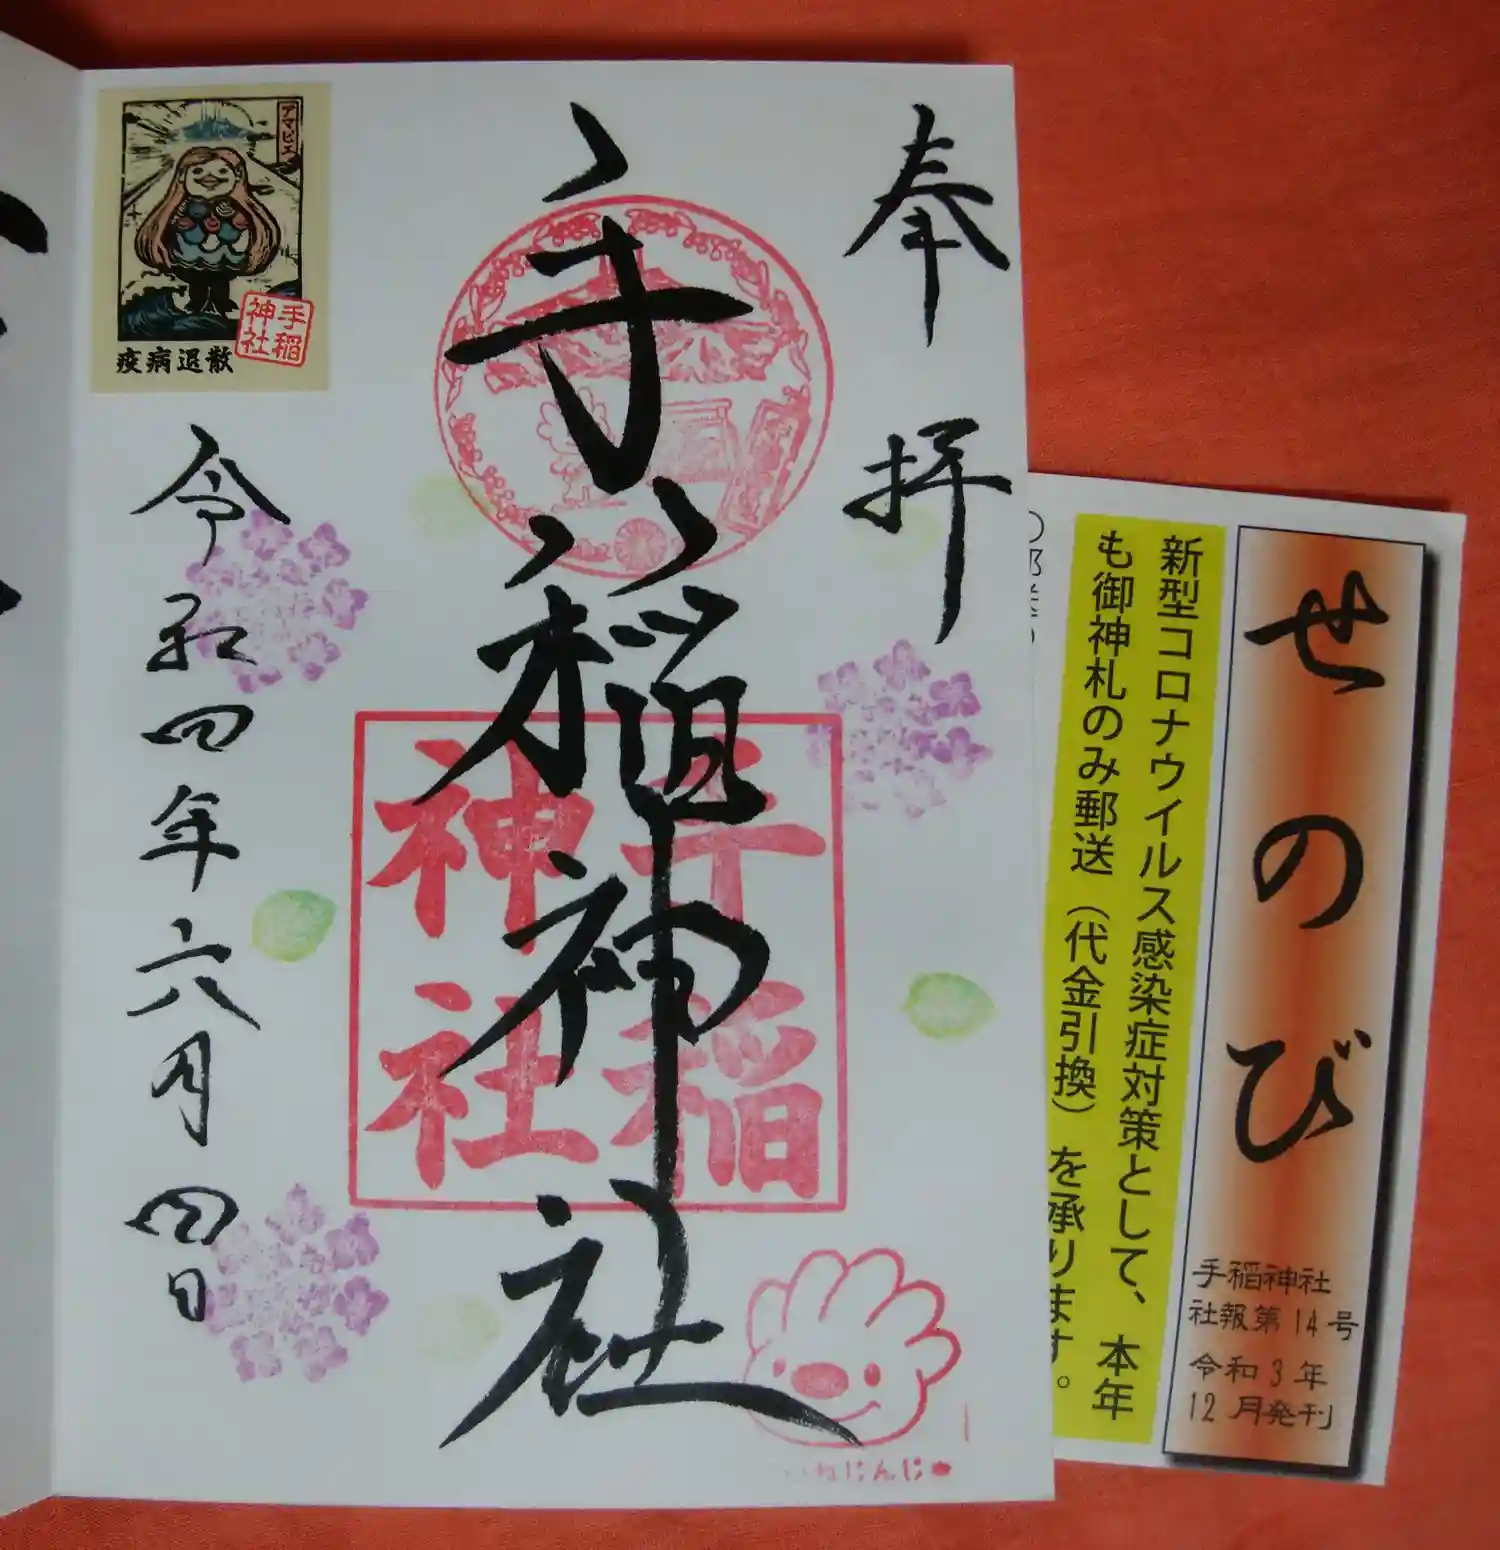 奉拝
手稲神社
手稲
神社
令和四年六月四日
アマビエ
手稲
神社
疫病退散
ねじんじ
せのび
手稲神社
社報第14号
令和3年
12月発刊
新型コロナウイルス感染症対策として、本年
も御神札のみ郵送（代金引換）を承ります。